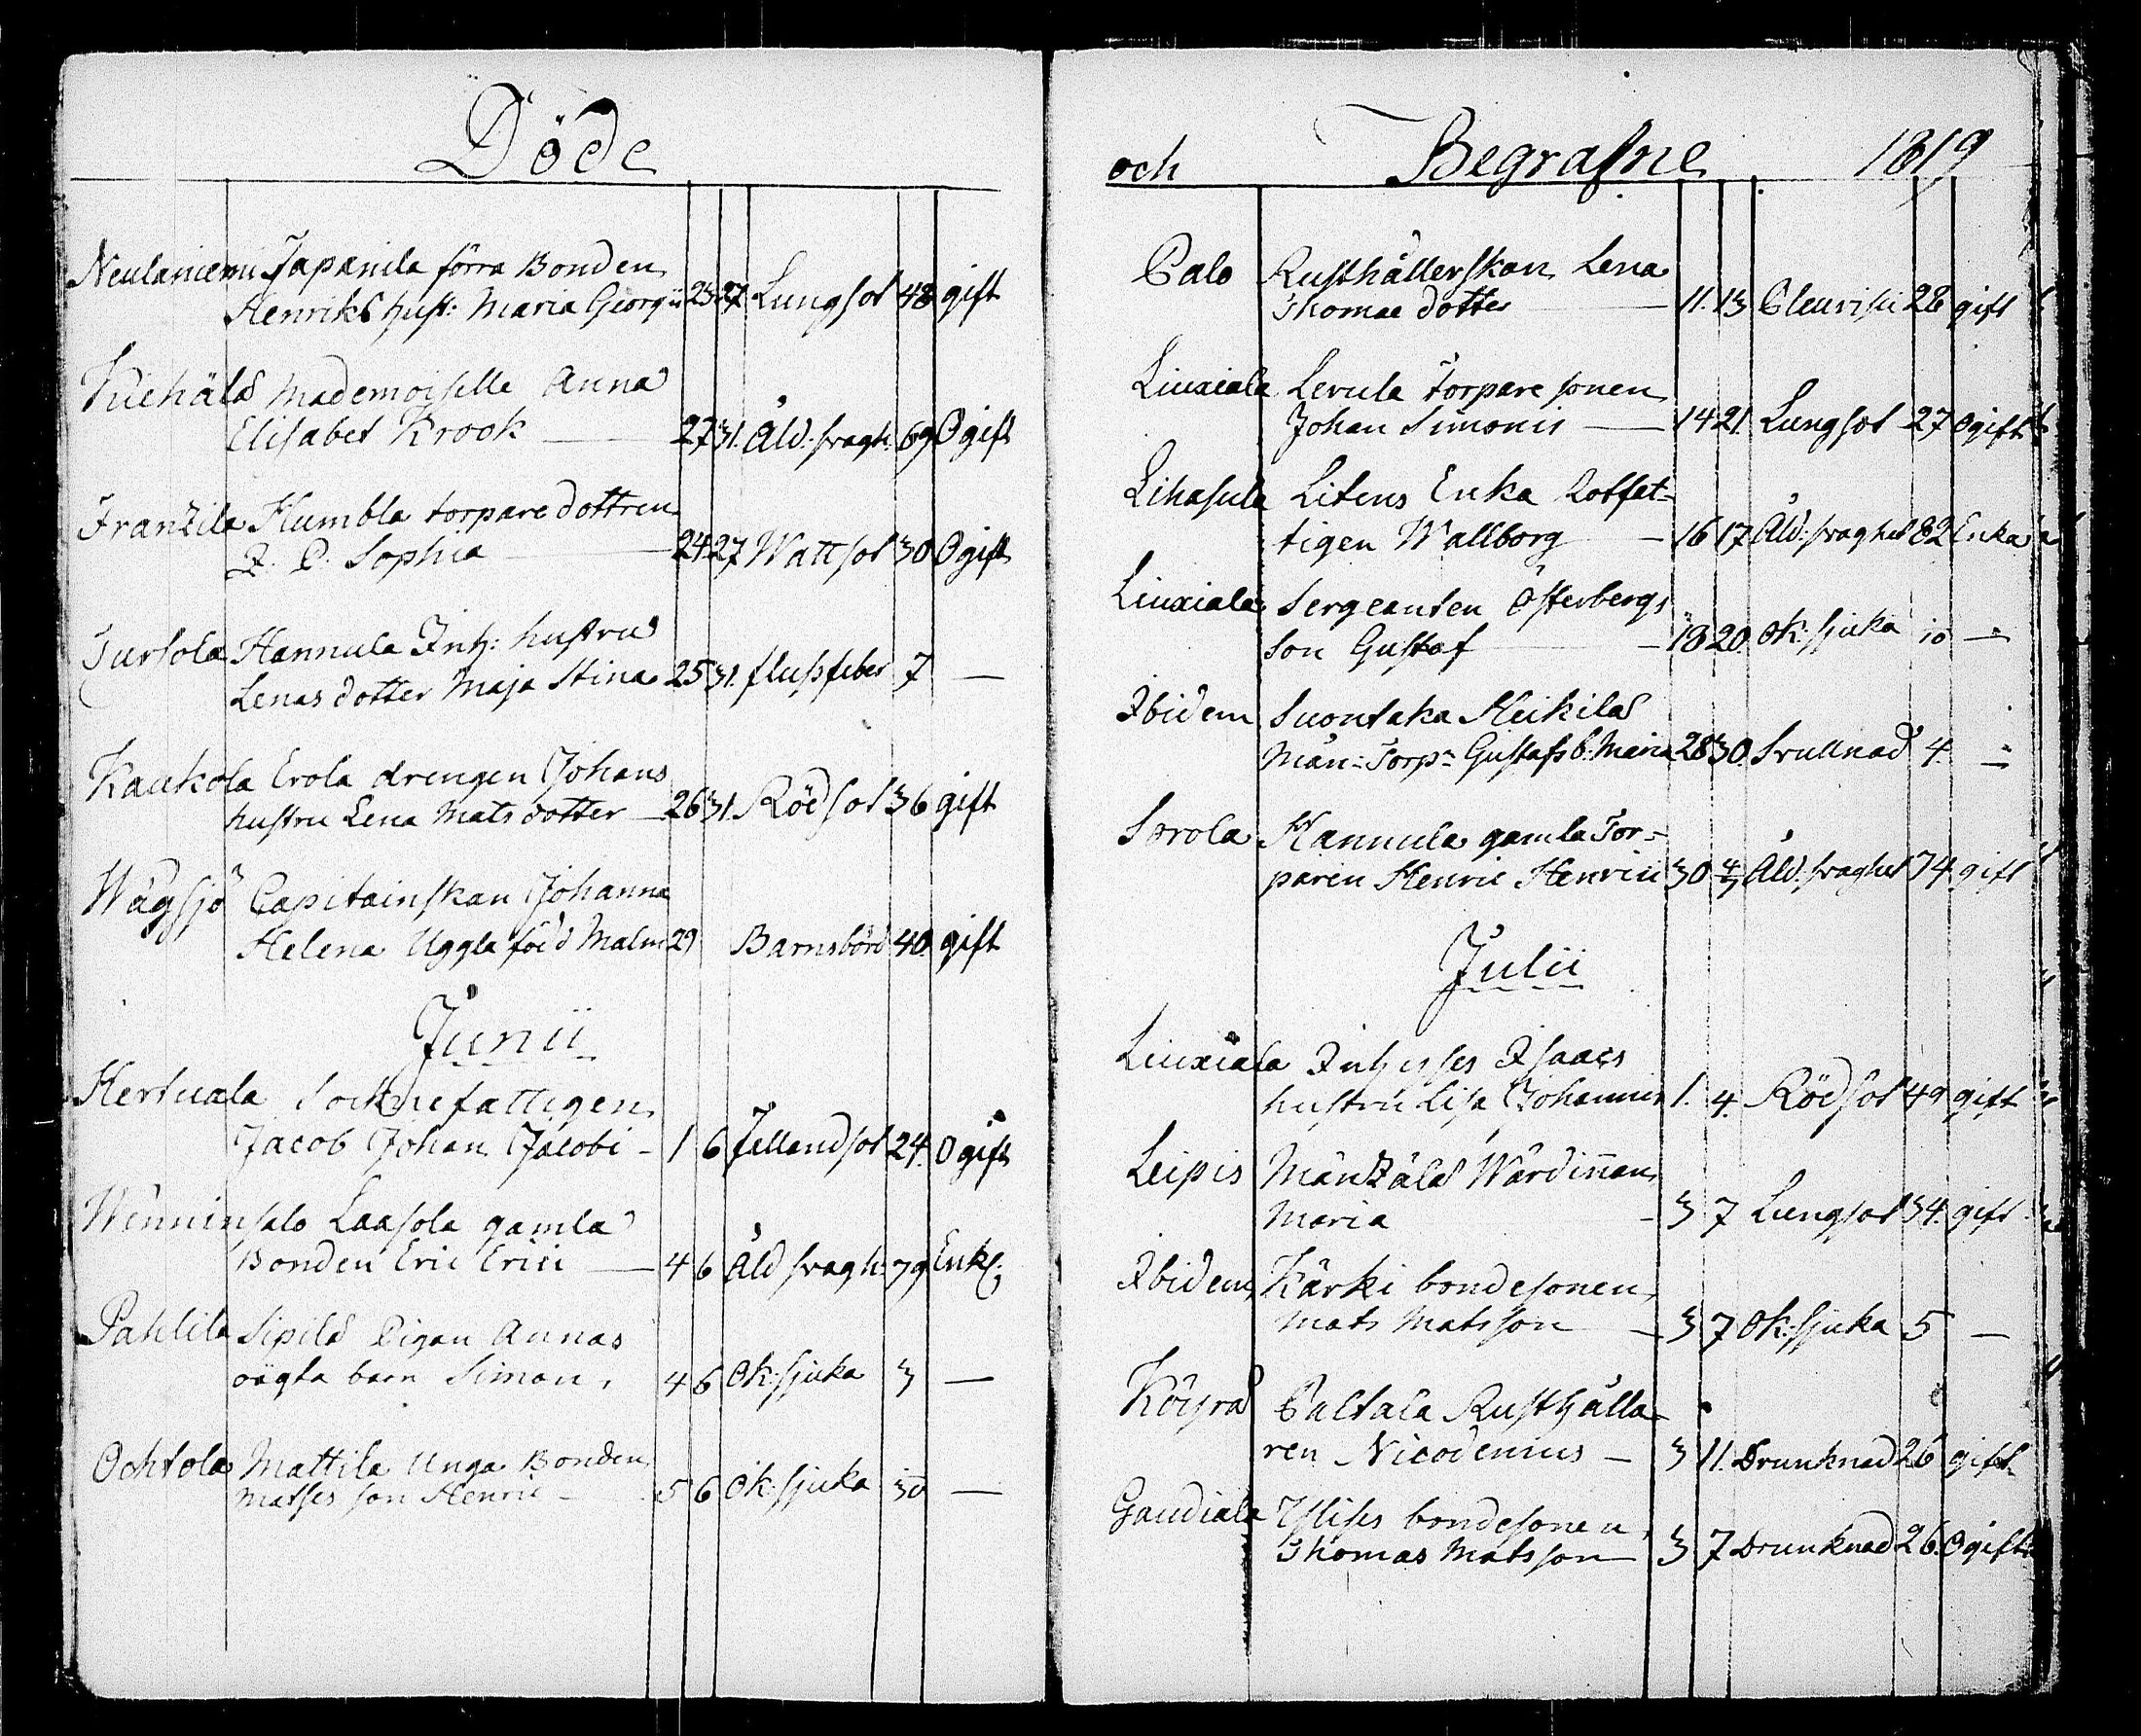 Döde
Neulaniemi Japanila förra Bonden
Henriks hust: Maria Georgii 23 27 Lungsot 48 gift
Kiehälä Mademoiselle Anna
Elisabet Krook — 27 31. Åld: svagh: 69 Ogift
Franzila Humbla torpare dottren
I. D. Sophia — 24 27 Wattsot 30 Ogift
Tursola Hannula Inh: hustru
Lenas dotter Maja Stina 25 31. flussfeber 7 —
Kaukola Erola drengen Johans
hustru Lena Mats dotter — 26 31. Rödsot 36 gift
Wågsjö Capitainskan Johanna
Helena Uggla född Malm 29 Barnsbörd 40. gift
Junii
Hertuala Socknefattigen
Jacob Johan Jacobi - 1 6 fallandsot 24. Ogift
Wenninsalo Laasola gamla
Bonden Eric Erici — 4 6 Åld svagh: 79 Enkl:
Pahlila Sipilä Pigan Annas
oägta barn Simon, 4 6 Ok: sjuka 3 —
Ochtola Mattila Unga Bonden
Matses son Henric — 5 6 Ok: sjuka —
och Begrafne 1819
Palo Rusthållerskan Lena
Thomae dotter — 11. 13 Pleurisii 28 gift
Liuxiala Levula Torpare sonen
Johan Simonis — 14 21. Lungsot 27 Ogift
Lihasula Litens Enka Rotfat-
tigen Wallborg — 16 17 Åld: svaghet 82 Enka
Liuxiala Sergeanten Österbergs
son Gustaf — 18 20. Ok: sjuka 10 —
Ibidem Suontaka Heikilä
Män: Torp: Gustafs b. Maria 28 30. Svullnad 4. —
Sorola Hannula gamla Tor-
paren Henric Henrici 30 4/7 Åld. svaghet 74. gift
Julii
Liuxiala Inhyses Isaacs
hustru Lisa Johannis 1. 4. Rödsot 49 gift
Leipis Mänzälä Wärdinnan
Maria - 3 7 Lungsot 34. gift
Ibidem Kärki bondesonen
Mats Matsson — 3 7 Ok: sjuka 5 —
Köyrä Paltala Rusthålla-
ren Nicodemus — 3 11. Drunknad 26 gift
Gaudiala Ylises bondesonen
Thomas Matsson 3 7 Drunknad 26. Ogift